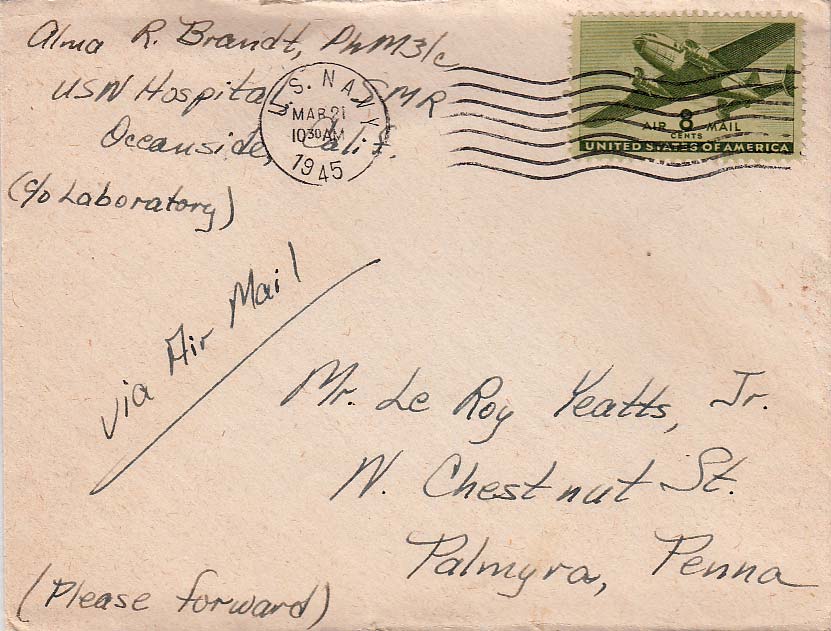 Alma R. Brandt, PhM3/c
USN Hospital SMR
Oceanside, Calif.
(c/o Laboratory)
U.S. NAVY
MAR 21
10 30 AM
1945
AIR 8 MAIL
CENTS
UNITED STATES OF AMERICA
via Air Mail
Mr. Le Roy Yeatts, Jr.
N. Chestnut St.
Palmyra, Penna
(Please forward)